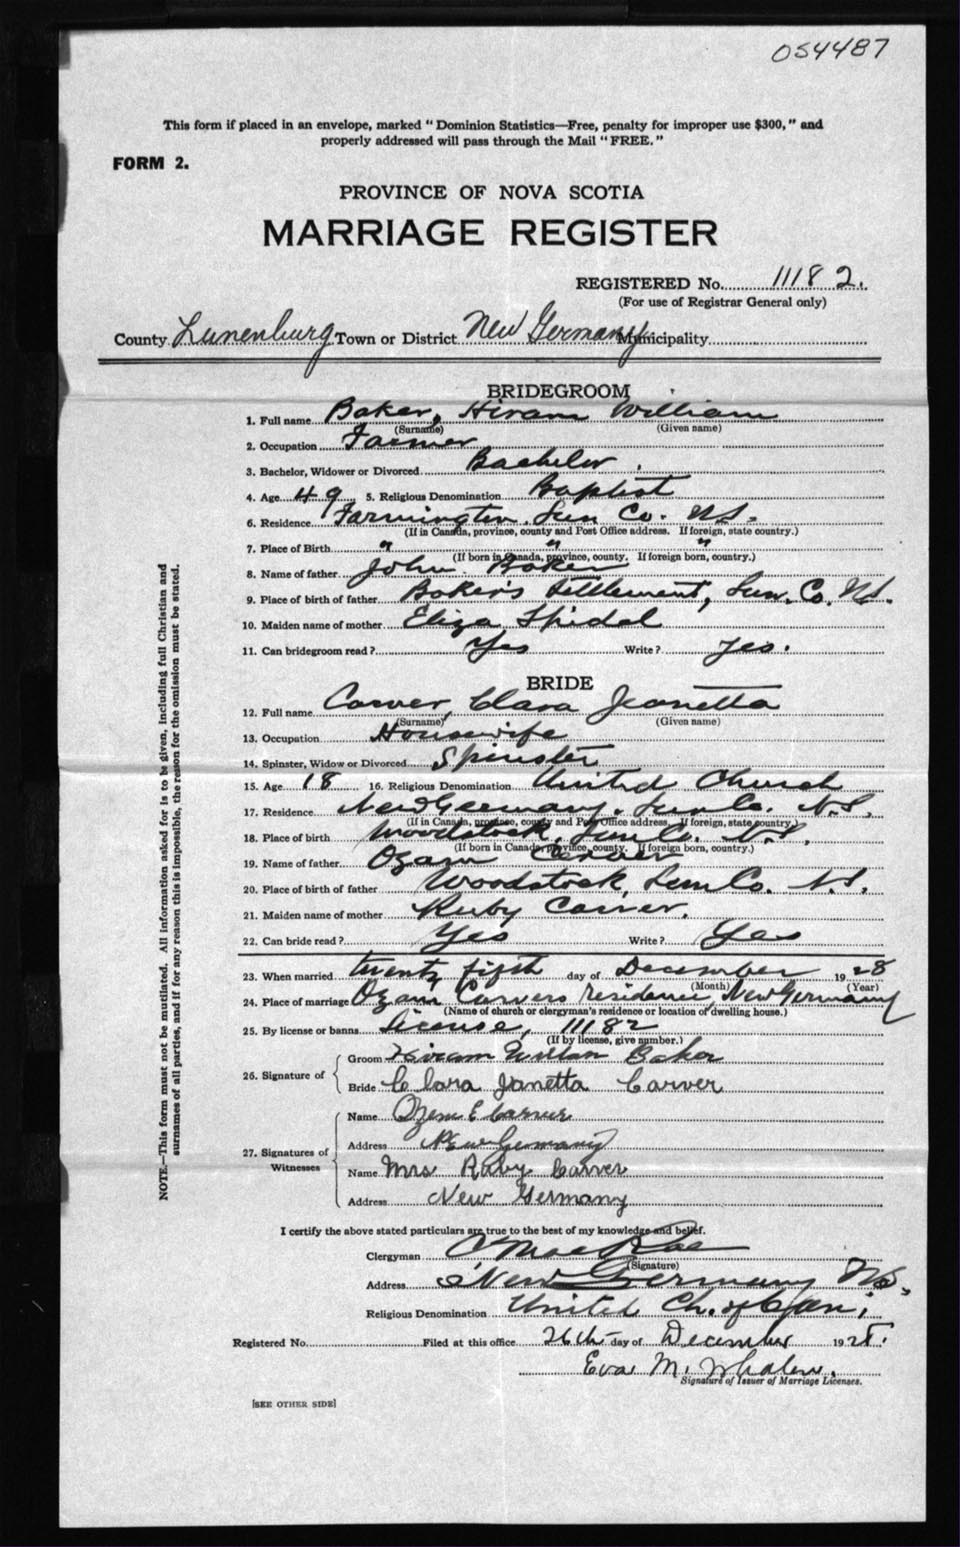 054487
This form if placed in an envelope, marked "Dominion Statistics—Free, penalty for improper use $300," and
properly addressed will pass through the Mail "FREE."
FORM 2.
PROVINCE OF NOVA SCOTIA
MARRIAGE REGISTER
REGISTERED No. 11182.
(For use of Registrar General only)
County Lunenburg Town or District New Germany Municipality
BRIDEGROOM
1. Full name Baker, Hiram William
(Surname) (Given name)
2. Occupation Farmer
3. Bachelor, Widower or Divorced Bachelor.
4. Age 49 5. Religious Denomination Baptist
6. Residence Farmington, Lun Co. N.S.
(If in Canada, province, county and Post Office address. If foreign, state country.)
7. Place of Birth " " "
(If born in Canada, province, county. If foreign born, country.)
8. Name of father John Baker
9. Place of birth of father Baker's Settlement, Lun. Co. N.S.
10. Maiden name of mother Eliza Spidal
11. Can bridegroom read? Yes Write? yes.
BRIDE
12. Full name Carver, Clara Jeanetta
(Surname) (Given name)
13. Occupation Housewife
14. Spinster, Widow or Divorced Spinster
15. Age 18 16. Religious Denomination United Church
17. Residence New Germany, Lun Co. N.S.
(If in Canada, province, county and Post Office address. If foreign, state country.)
18. Place of birth Woodstock, Lun Co. N.S.
(If born in Canada, province, county. If foreign born, country.)
19. Name of father Ozam Carver
20. Place of birth of father Woodstock, Lun Co. N.S.
21. Maiden name of mother Ruby Carver.
22. Can bride read? Yes Write? Yes
23. When married twenty fifth day of December 1928
(Month) (Year)
24. Place of marriage Ozam Carvers residence, New Germany
(Name of church or clergyman's residence or location of dwelling house.)
25. By license or banns license, 11182
(If by license, give number.)
26. Signature of
Groom Hiram Willan Baker
Bride Clara Janetta Carver
27. Signatures of Witnesses
Name Ozem E Carver
Address New Germany
Name Mrs Ruby Carver
Address New Germany
I certify the above stated particulars are true to the best of my knowledge and belief.
Clergyman
(Signature)
Address New Germany N.S.
Religious Denomination United Ch. of Can.
Registered No. Filed at this office 26th day of December 1928.
Eva M. Whalen.
Signature of Issuer of Marriage Licenses.
[SEE OTHER SIDE]
NOTE.—This form must not be mutilated. All information asked for is to be given, including full Christian and
surnames of all parties, and if for any reason this is impossible, the reason for the omission must be stated.